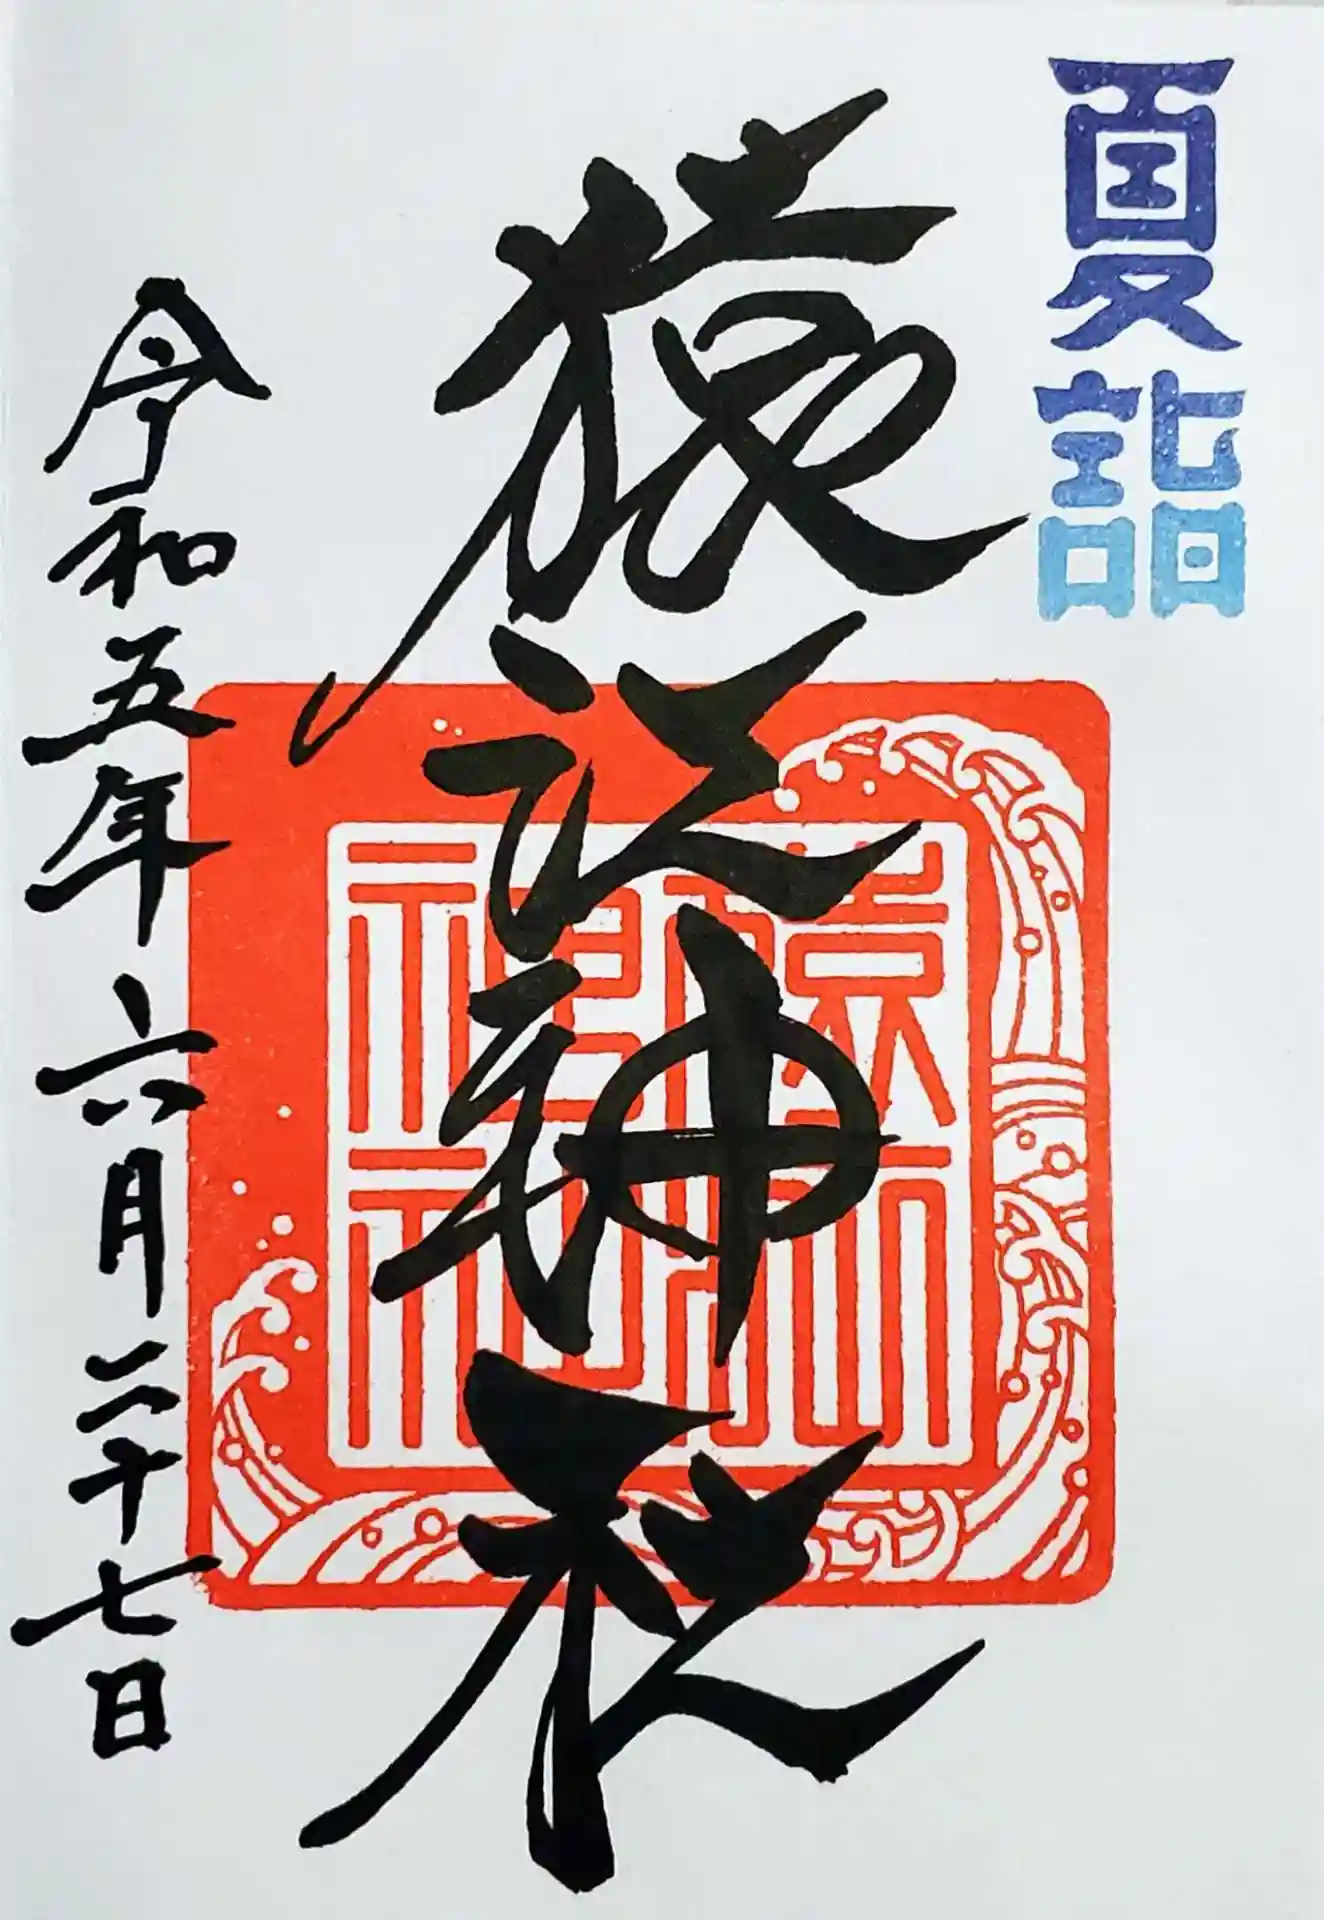 夏詣
猿江神社
猿江
神社
令和五年六月二十七日